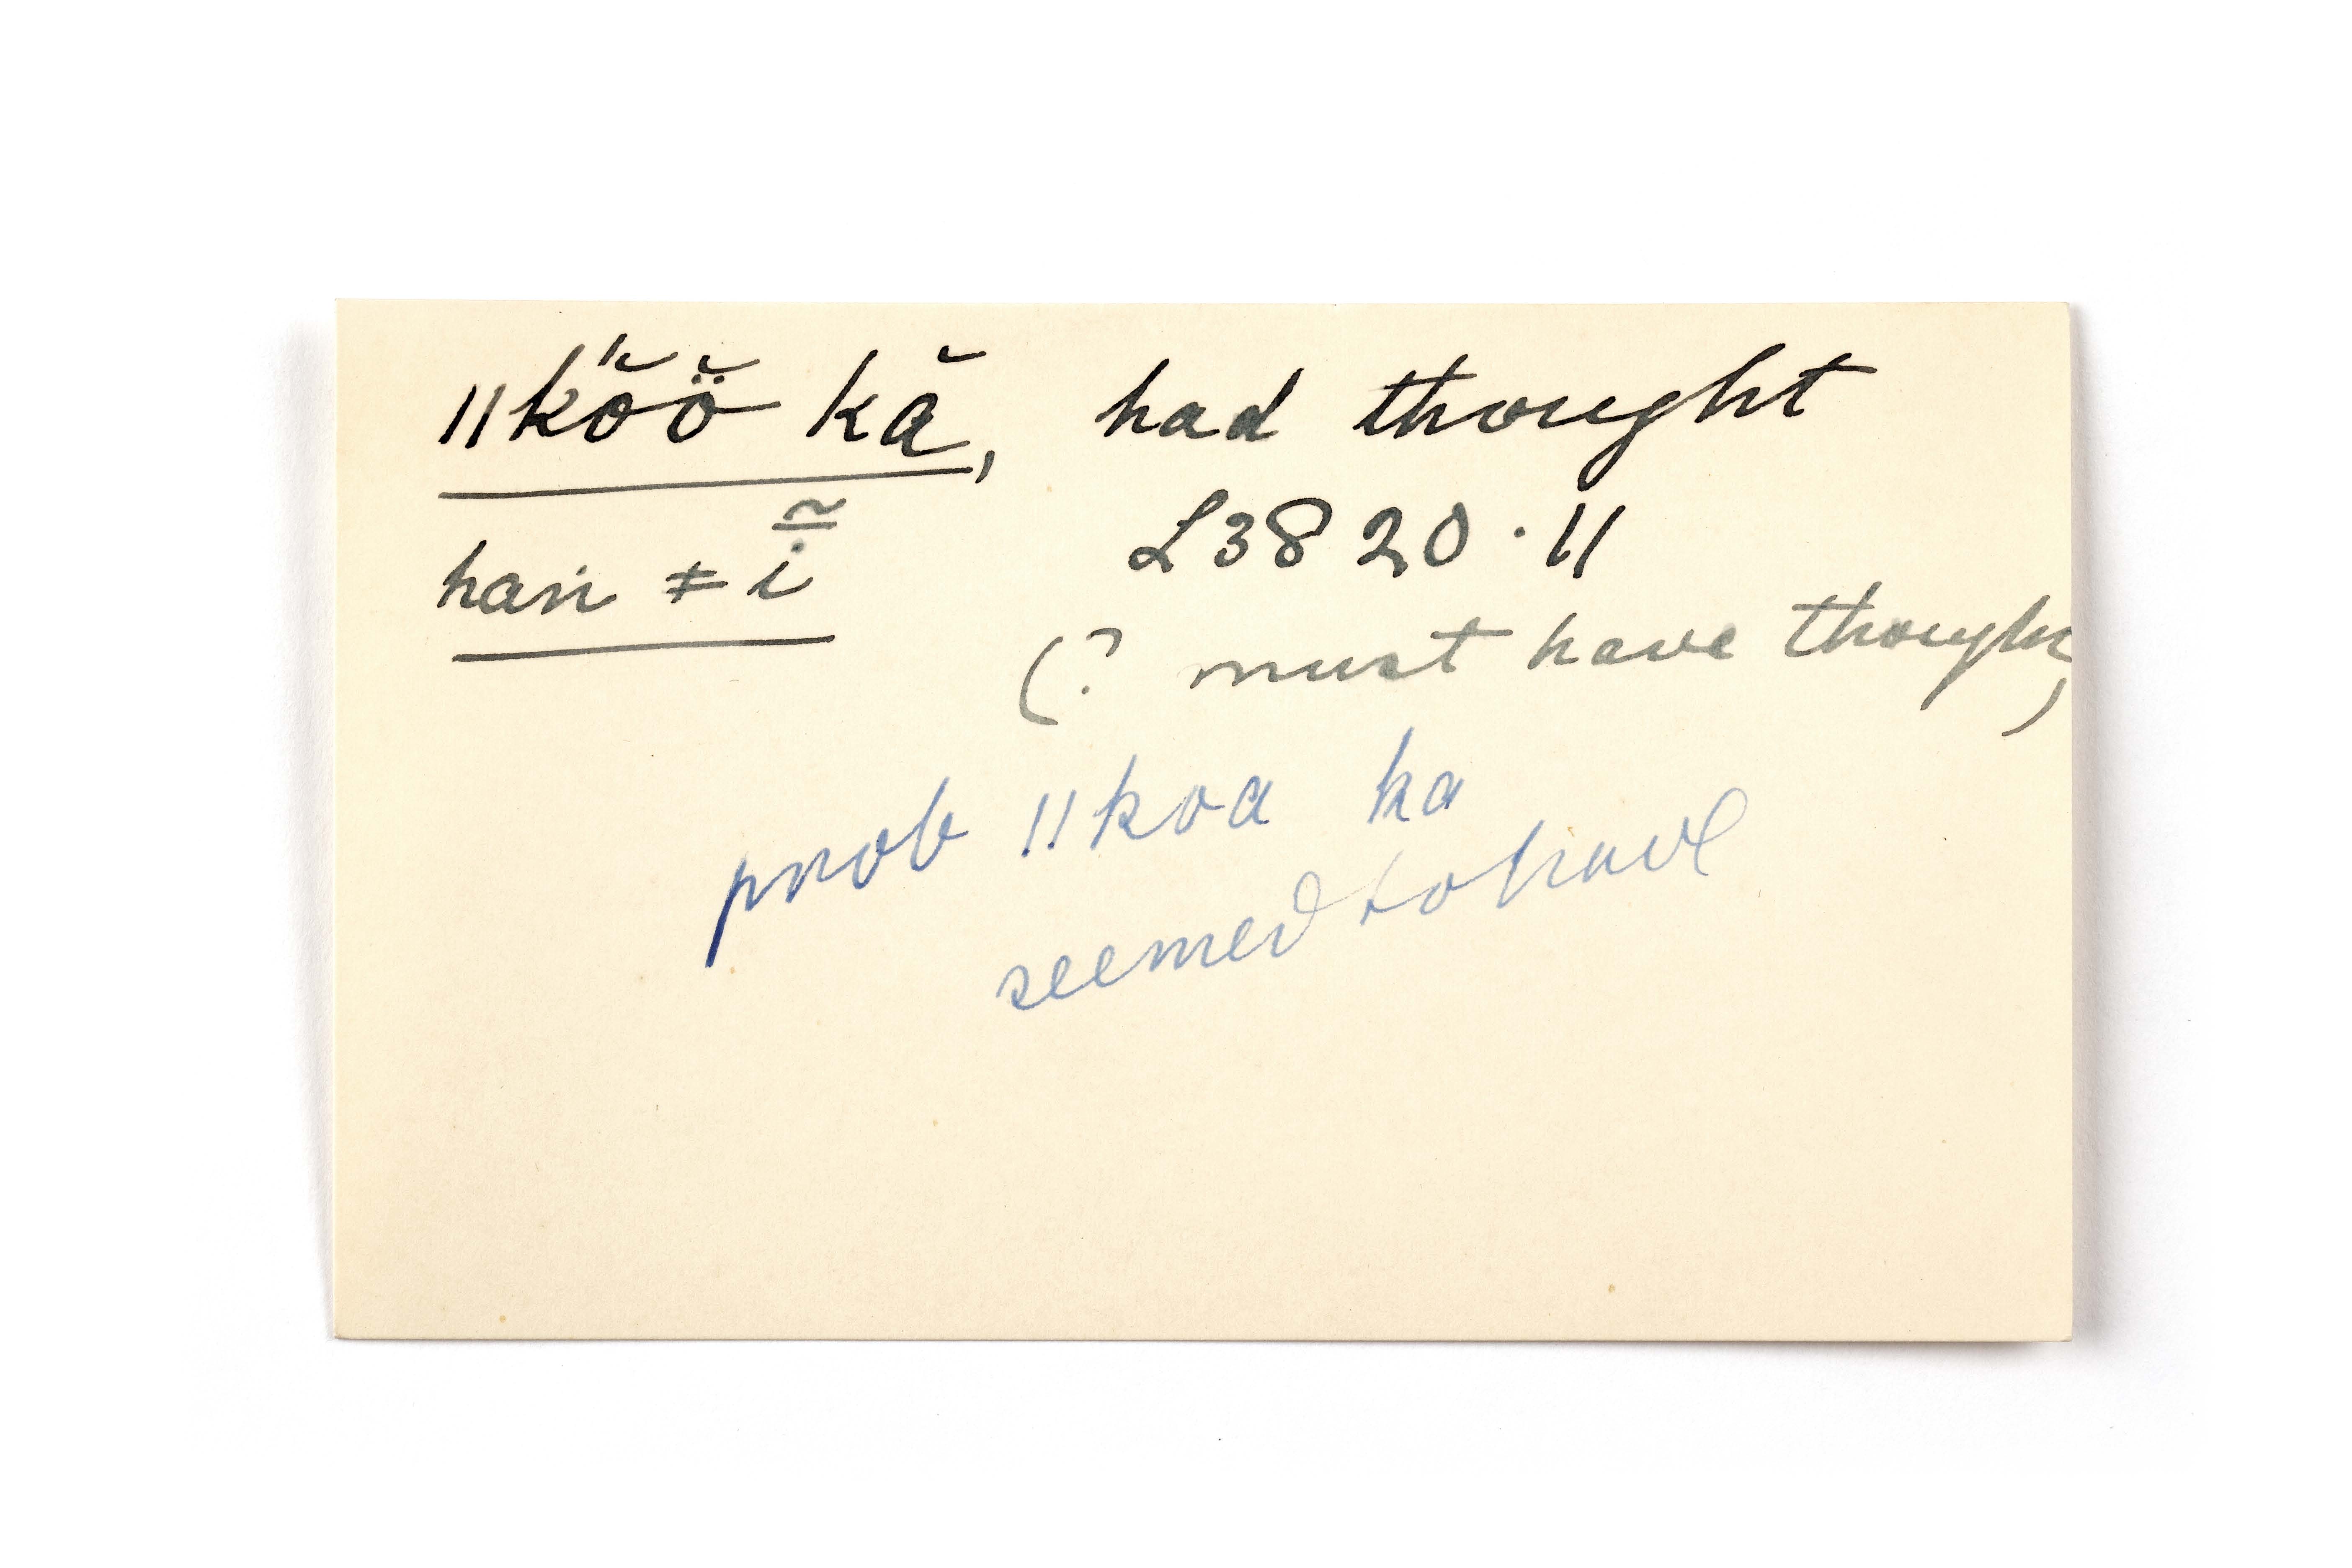 ǁkŏ̋ŏ̈ kă, had thought
haṅ ǂĩ̱ L3820·11
(? must have thought)
prob ǁkoa ka
seemed to have